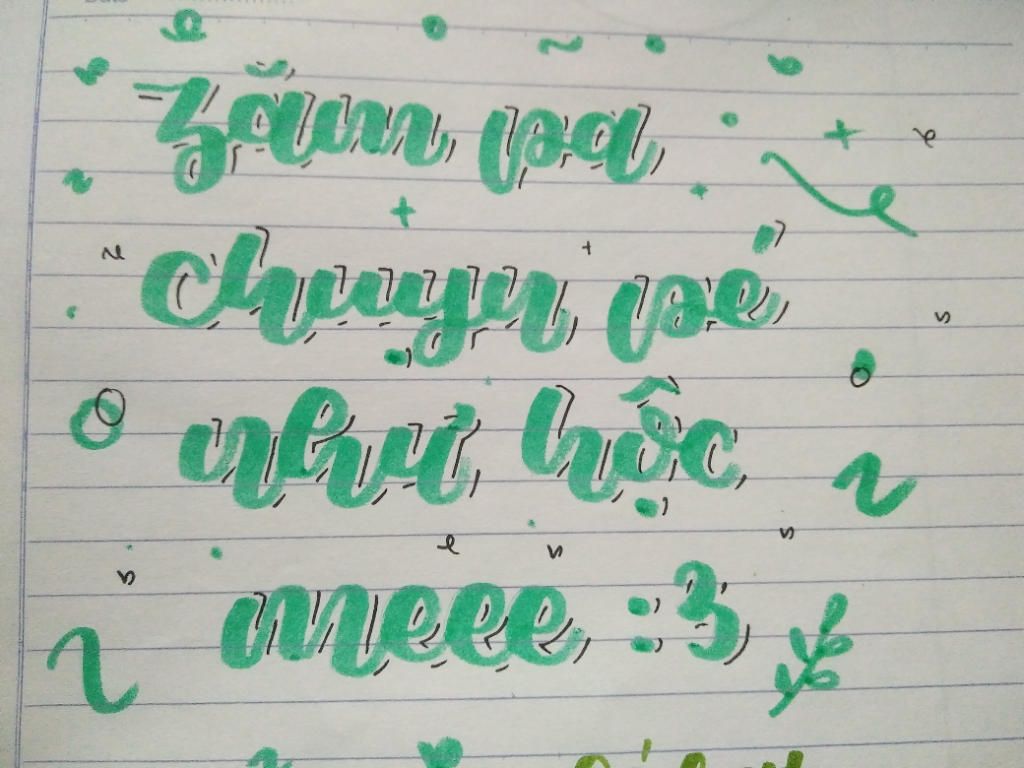 zăm pa
chuỵn pé
như hộc
meee :3